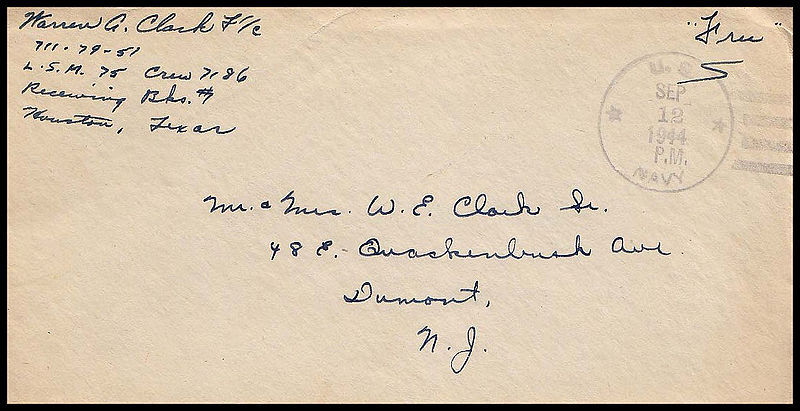 Warren A. Clark F1/c
711-79-51
L.S.M. 75 Crew 7186
Receiving Bks. #1
Houston, Texas
"Free"
U.S.
SEP
12
1944
P.M.
NAVY
Mr. & Mrs. W. E. Clark Sr.
48 E. Quackenbush Ave
Dumont,
N. J.